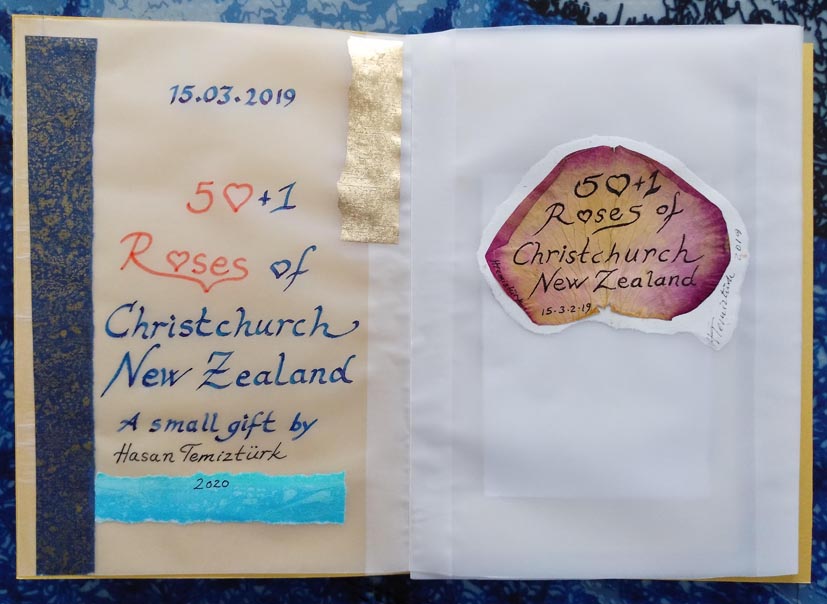 15.03.2019
5♡+1
Roses of
Christchurch
New Zealand
A small gift by
Hasan Temiztürk
2020
5♡+1
Roses of
Christchurch
New Zealand
15-3-2-19
HTemiztürk 2019